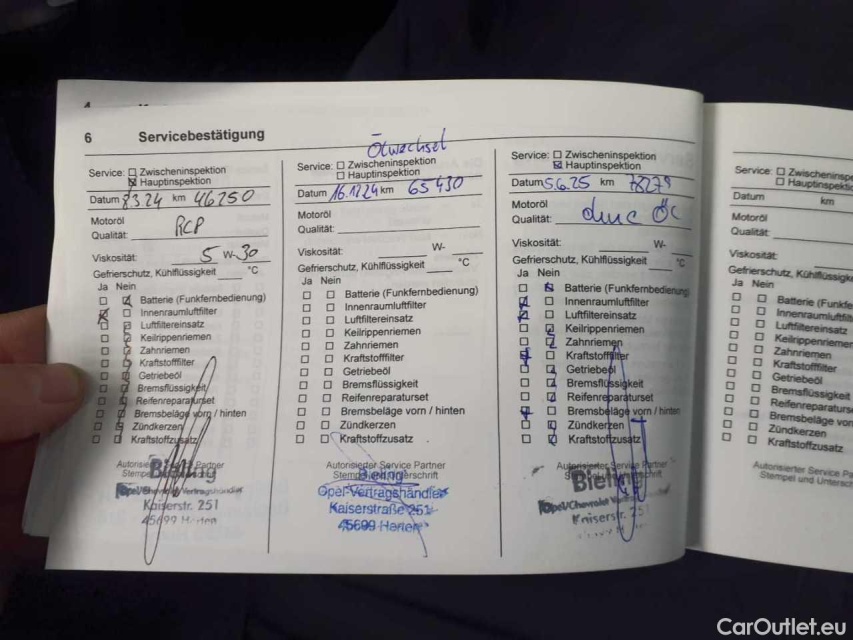 6 Servicebestätigung
Service: Zwischeninspektion
Hauptinspektion
Datum 8.3.24 km 46250
Motoröl
Qualität:
Viskosität: 5 W-30
Gefrierschutz, Kühlflüssigkeit °C
Ja Nein
Batterie (Funkfernbedienung)
Innenraumluftfilter
Luftfiltereinsatz
Keilrippenriemen
Zahnriemen
Kraftstofffilter
Getriebeöl
Bremsflüssigkeit
Reifenreparaturset
Bremsbeläge vorn / hinten
Zündkerzen
Kraftstoffzusatz
Autorisierter Service Partner
Bieling
Opel/Chevrolet Vertragshändler
Kaiserstr. 251
45699 Herten
Ölwechsel
Service: Zwischeninspektion
Hauptinspektion
Datum 16.12.24 km 65430
Motoröl
Qualität:
Viskosität: W-
Gefrierschutz, Kühlflüssigkeit °C
Ja Nein
Batterie (Funkfernbedienung)
Innenraumluftfilter
Luftfiltereinsatz
Keilrippenriemen
Zahnriemen
Kraftstofffilter
Getriebeöl
Bremsflüssigkeit
Reifenreparaturset
Bremsbeläge vorn / hinten
Zündkerzen
Kraftstoffzusatz
Autorisierter Service Partner
Bieling
Opel-Vertragshändler
Kaiserstraße 251
45699 Herten
Service: Zwischeninspektion
Hauptinspektion
Datum 5.6.25 km 78279
Motoröl
Qualität:
Viskosität: W-
Gefrierschutz, Kühlflüssigkeit °C
Ja Nein
Batterie (Funkfernbedienung)
Innenraumluftfilter
Luftfiltereinsatz
Keilrippenriemen
Zahnriemen
Kraftstofffilter
Getriebeöl
Bremsflüssigkeit
Reifenreparaturset
Bremsbeläge vorn / hinten
Zündkerzen
Kraftstoffzusatz
Autorisierter Service Partner
Bieling
Opel/Chevrolet
Kaiserstr. 251
Service: Zwischeninspe
Hauptinspekti
Datum km
Motoröl
Qualität:
Viskosität:
Gefrierschutz, Kühlflüssigk
Ja Nein
Batterie (Funkfe
Innenraumluftfilt
Luftfiltereinsatz
Keilrippenriemen
Zahnriemen
Kraftstofffilter
Getriebeöl
Bremsflüssigkeit
Reifenreparaturs
Bremsbeläge vorn
Zündkerzen
Kraftstoffzusatz
Autorisierter Service Pa
Stempel und Untersch
CarOutlet.eu